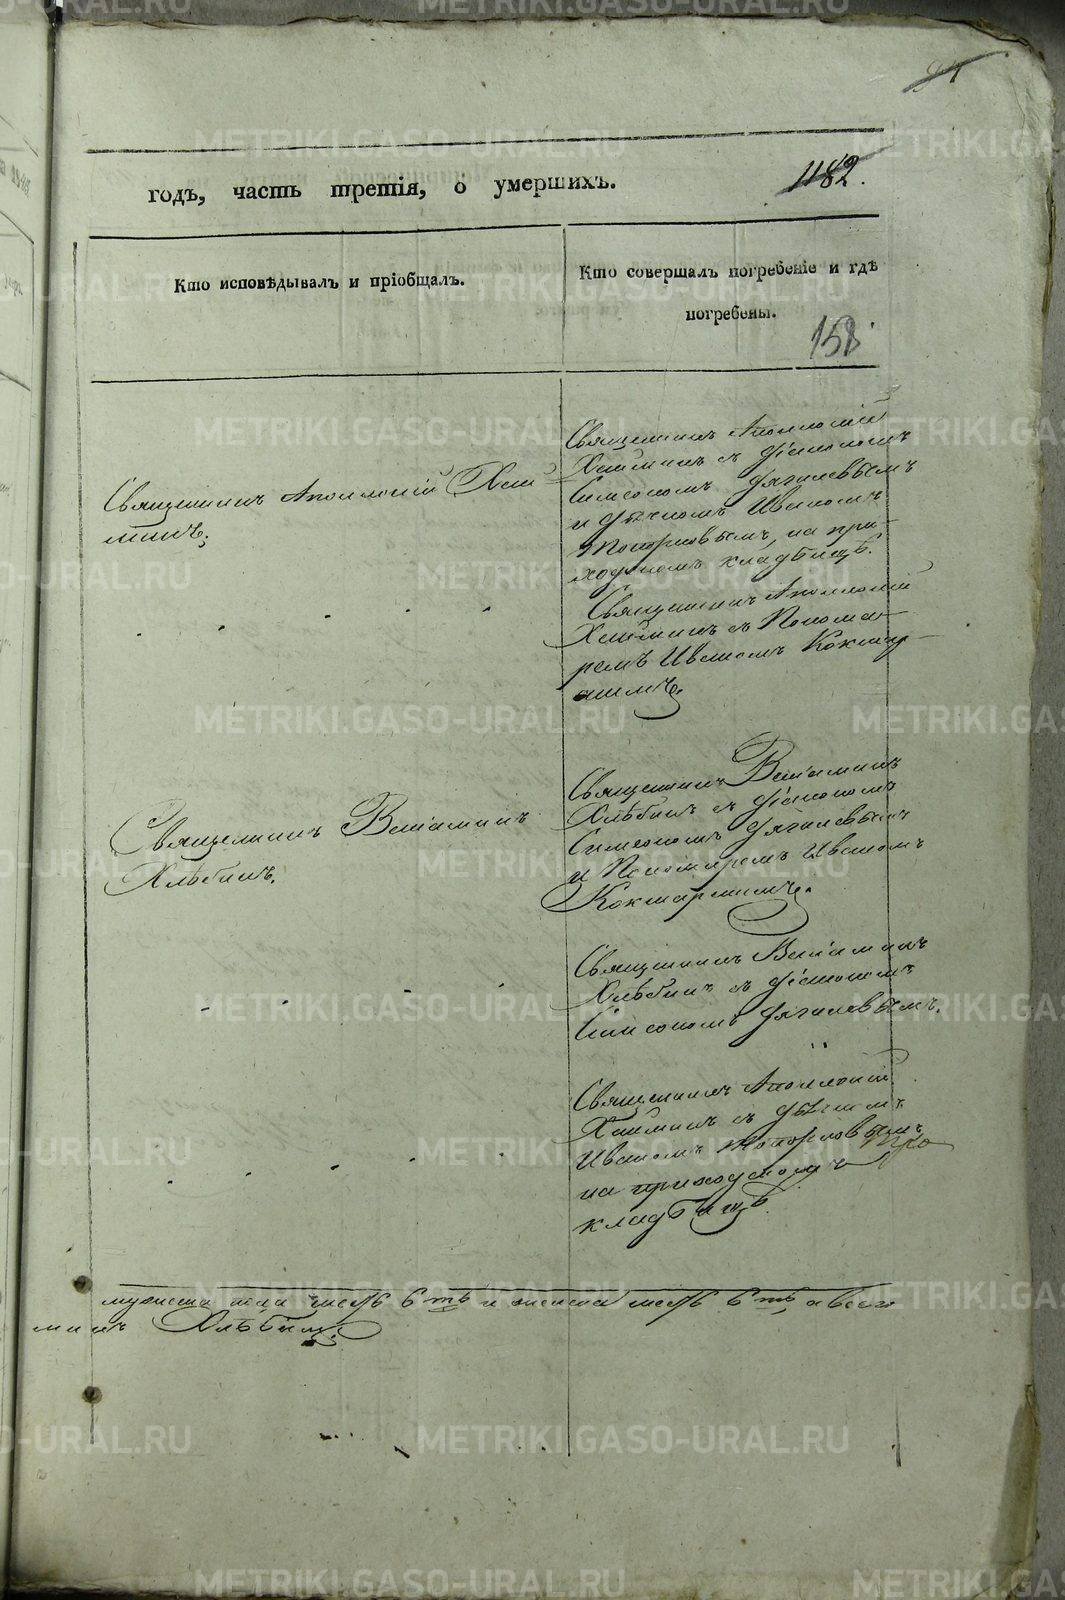 годъ, часть третія, о умершихъ.
1182.
Кто исповѣдывалъ и пріобщалъ.
Кто совершалъ погребеніе и гдѣ
погребены.
158.
Священникъ Аполлоній
Священникъ Аполлоній
съ Діакономъ
Симеономъ Дягилевымъ
и Дьячкомъ Иваномъ
Топорковымъ, на при-
ходскомъ кладбищѣ.
Священникъ Аполлоній
съ Понома-
ремъ Иваномъ Кокшар-
Священникъ Веніаминъ
Хлѣбинъ.
Священникъ Веніаминъ
Хлѣбинъ съ Діакономъ
Симеономъ Дягилевымъ
и Пономаремъ Иваномъ
Священникъ Веніаминъ
Хлѣбинъ съ Діакономъ
Симеономъ Дягилевымъ.
Священникъ Аполлоній
съ Дьячкомъ
Иваномъ Топорковымъ
на приходскомъ
кладбищѣ
мужеска пола 6 и женска 6 а всего
минъ Хлѣбинъ
METRIKI.GASO-URAL.RU